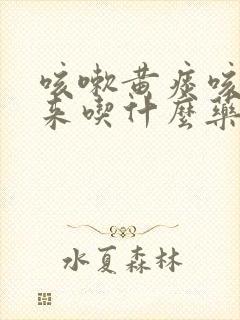 咳嗽黄痰咳
来喫什麼藥
水夏森林